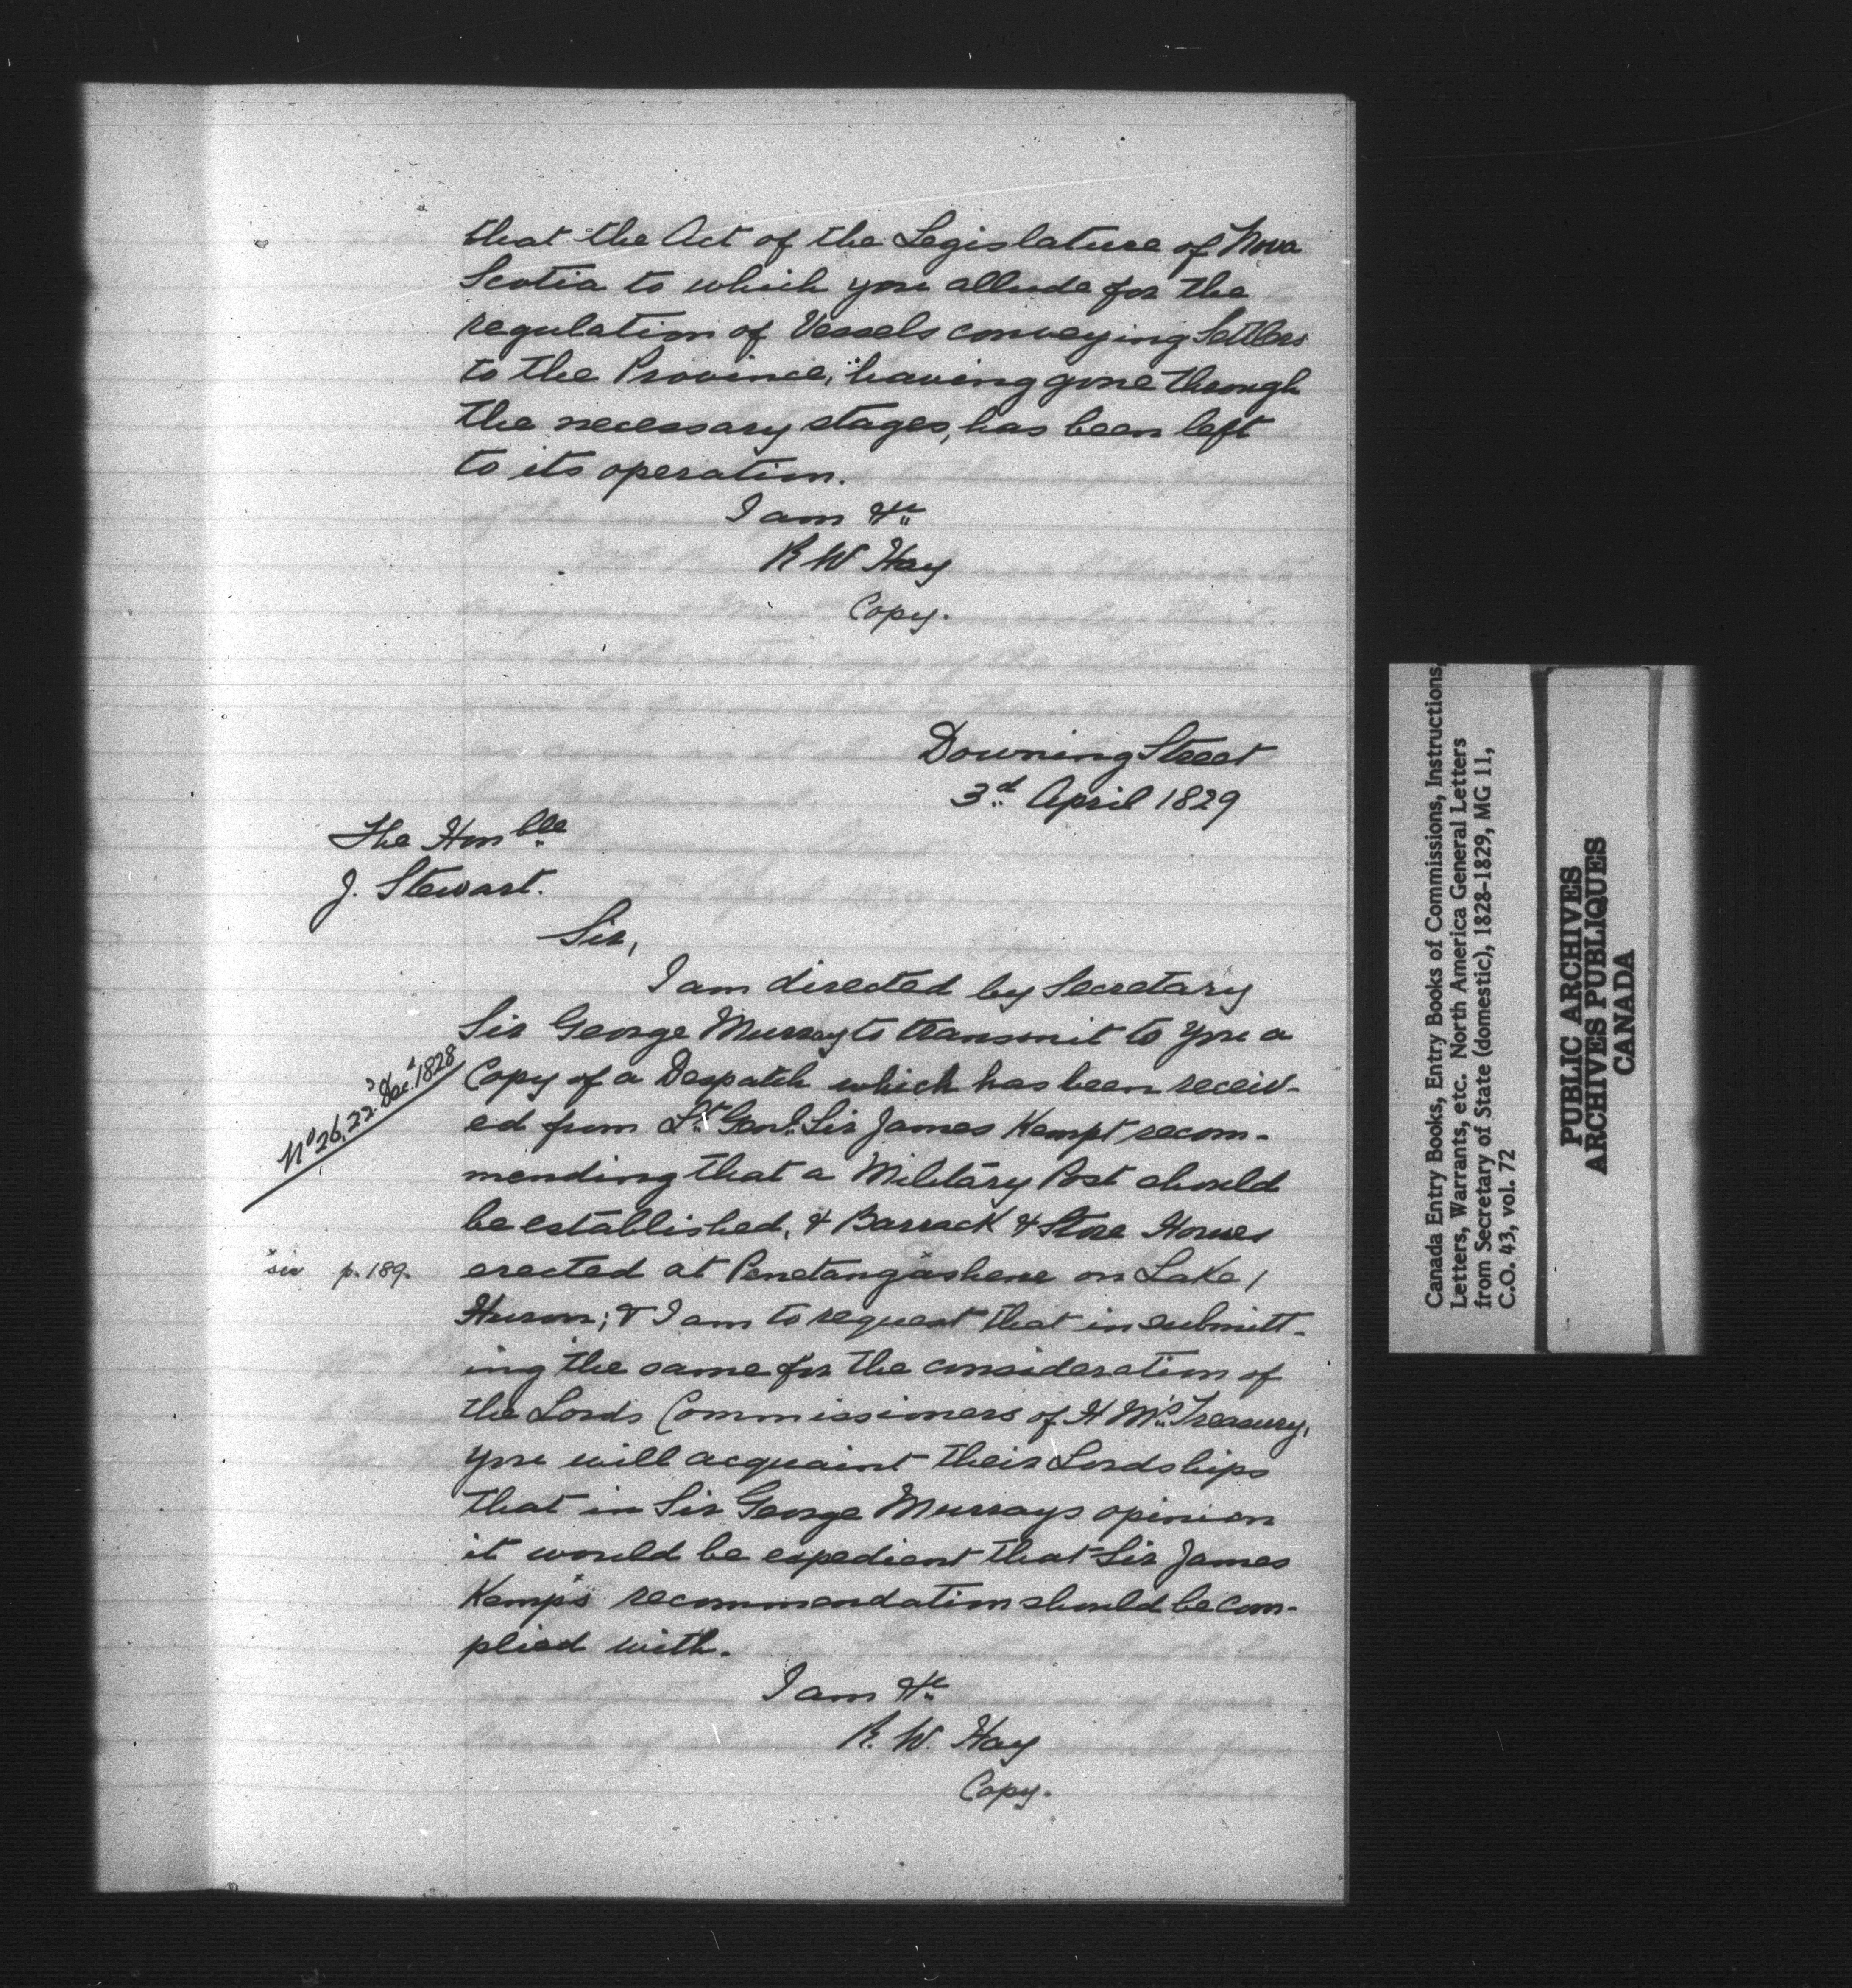 that the Act of the Legislature of Nova
Scotia to which you allude for the
regulation of Vessels conveying Settlers
to the Province, having gone through
the necessary stages, has been left
to its operation.
I am &c
R W Hay
Copy.
Downing Street
3d April 1829
The Honble
J. Stewart.
Sir,
I am directed by Secretary
Sir George Murray to transmit to you a
Copy of a Despatch which has been receiv-
ed from Lt Genl. Sir James Kempt recom-
mending that a Military Post should
be established, & Barrack & Store Houses
erected at Penetangashene on Lake
Huron; & I am to request that in submitt-
ing the same for the consideration of
the Lords Commissioners of H M's Treasury,
you will acquaint their Lordships
that in Sir George Murrays opinion
it would be expedient that Sir James
Kemp's recommendation should be com-
plied with.
I am &c
R. W. Hay
Copy.
No 26, 22d Dec. 1828
sic p. 189.
Canada Entry Books, Entry Books of Commissions, Instructions,
Letters, Warrants, etc. North America General Letters
from Secretary of State (domestic), 1828-1829, MG 11,
C.O. 43, vol. 72
PUBLIC ARCHIVES
ARCHIVES PUBLIQUES
CANADA